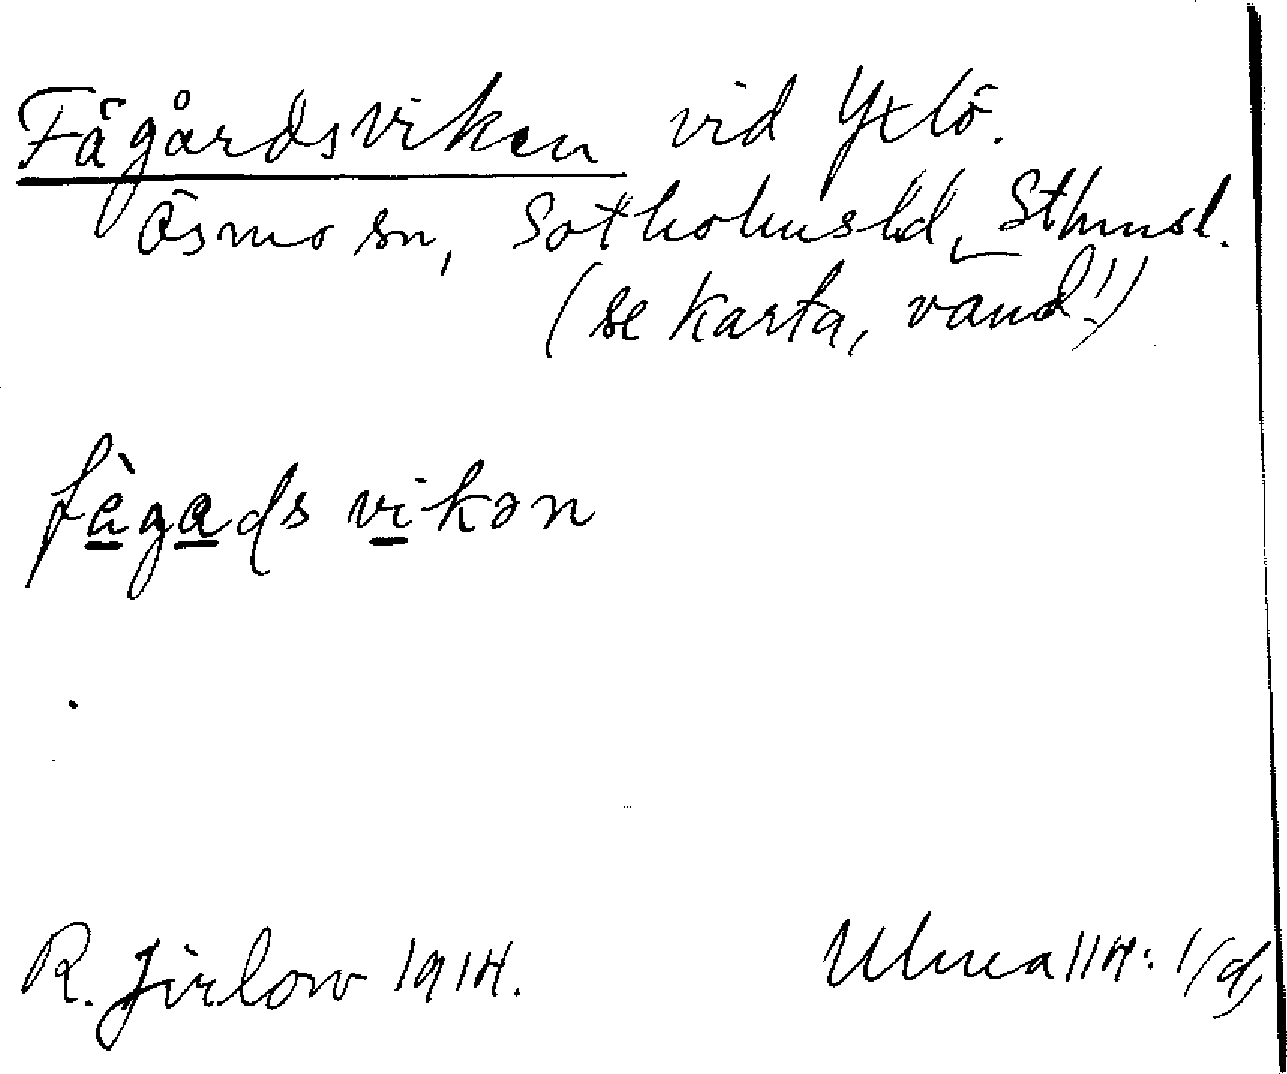 Fågårdsviken vid Yxlö.
Ösmo sn, Sotholmshd, Sthmsl.
(se karta, vänd!)
fàgads vikən
R. Jirlow 1914.